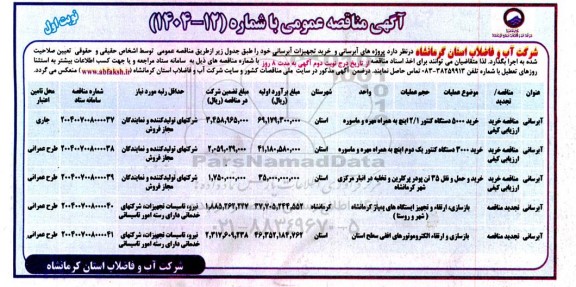 آگهی مناقصه عمومی با شماره (۱۲-۱۴۰۴)
نوبت اول
شرکت آب و فاضلاب استان کرمانشاه درنظر دارد پروژه های آبرسانی و خرید تجهیزات آبرسانی خود را طبق جدول زیر ازطریق مناقصه عمومی توسط اشخاص حقیقی و حقوقی تعیین صلاحیت
شده به اجرا بگذارد. لذا متقاضیان می توانند برای اخذ اسناد مناقصه از تاریخ درج نوبت دوم آگهی به مدت ۸ روز با شماره مناقصه های ذیل به سامانه ستاد مراجعه و یا جهت کسب اطلاعات بیشتر به استثنا
روزهای تعطیل با شماره تلفن ۳۸۲۵۹۹۱۳-۰۸۳ تماس حاصل نمایند. درضمن آگهی مذکور در سایت ملی مناقصات کشور و سایت شرکت آب و فاضلاب استان کرمانشاه (www.abfaksh.ir) منعکس می گردد.
عنوان مناقصه/تجدید موضوع عملیات حجم عملیات واحد شهرستان مبلغ برآورد اولیه (ریال) مبلغ تضمین شرکت در مناقصه (ریال) حداقل رتبه مورد نیاز شماره مناقصه سامانه ستاد محل تامین اعتبار
آبرسانی مناقصه خرید ارزیابی کیفی خرید ۵۰۰۰ دستگاه کنتور ۲/۱ اینچ به همراه مهره و ماسوره استان ۶۹,۱۷۹,۳۰۰,۰۰۰ ۳,۴۵۸,۹۶۵,۰۰۰ شرکتهای تولیدکننده و نمایندگان مجاز فروش ۲۰۰۴۰۰۷۰۰۸۰۰۰۰۳۷ جاری
آبرسانی مناقصه خرید ارزیابی کیفی خرید ۳۰۰۰ دستگاه کنتور یک دوم اینچ به همراه مهره و ماسوره استان ۴۱,۱۸۰,۵۸۰,۰۰۰ ۲,۰۵۹,۰۲۹,۰۰۰ شرکتهای تولیدکننده و نمایندگان مجاز فروش ۲۰۰۴۰۰۷۰۰۸۰۰۰۰۳۸ طرح عمرانی
آبرسانی مناقصه خرید ارزیابی کیفی خرید و حمل و نقل ۳۵ تن پودر پرکلرین و تخلیه در انبار مرکزی شهر کرمانشاه استان ۳۵,۰۰۰,۰۰۰,۰۰۰ ۱,۷۵۰,۰۰۰,۰۰۰ شرکتهای تولیدکننده و نمایندگان مجاز فروش ۲۰۰۴۰۰۷۰۰۸۰۰۰۰۳۹ طرح عمرانی
آبرسانی تجدید مناقصه بازسازی، ارتقاء و تجهیز ایستگاه های پمپاژ کرمانشاه (شهر و روستا) کرمانشاه ۳۷,۷۰۵,۲۴۴,۵۵۲ ۱,۸۸۵,۲۶۲,۲۲۷ نیرو، تاسیسات تجهیزات، شرکتهای خدماتی دارای رسته امور تاسیساتی ۲۰۰۴۰۰۷۰۰۸۰۰۰۰۴۰ طرح عمرانی
آبرسانی تجدید مناقصه بازسازی و ارتقاء الکتروموتورهای افقی سطح استان استان ۴۶,۳۵۲,۱۸۴,۷۶۲ ۲,۳۱۷,۶۰۹,۲۳۸ نیرو، تاسیسات تجهیزات، شرکتهای خدماتی دارای رسته امور تاسیساتی ۲۰۰۴۰۰۷۰۰۸۰۰۰۰۴۱ طرح عمرانی
ParsNamadData
۰۲۱-۸۸۳۴۹۶۷۰-۵
شرکت آب و فاضلاب استان کرمانشاه